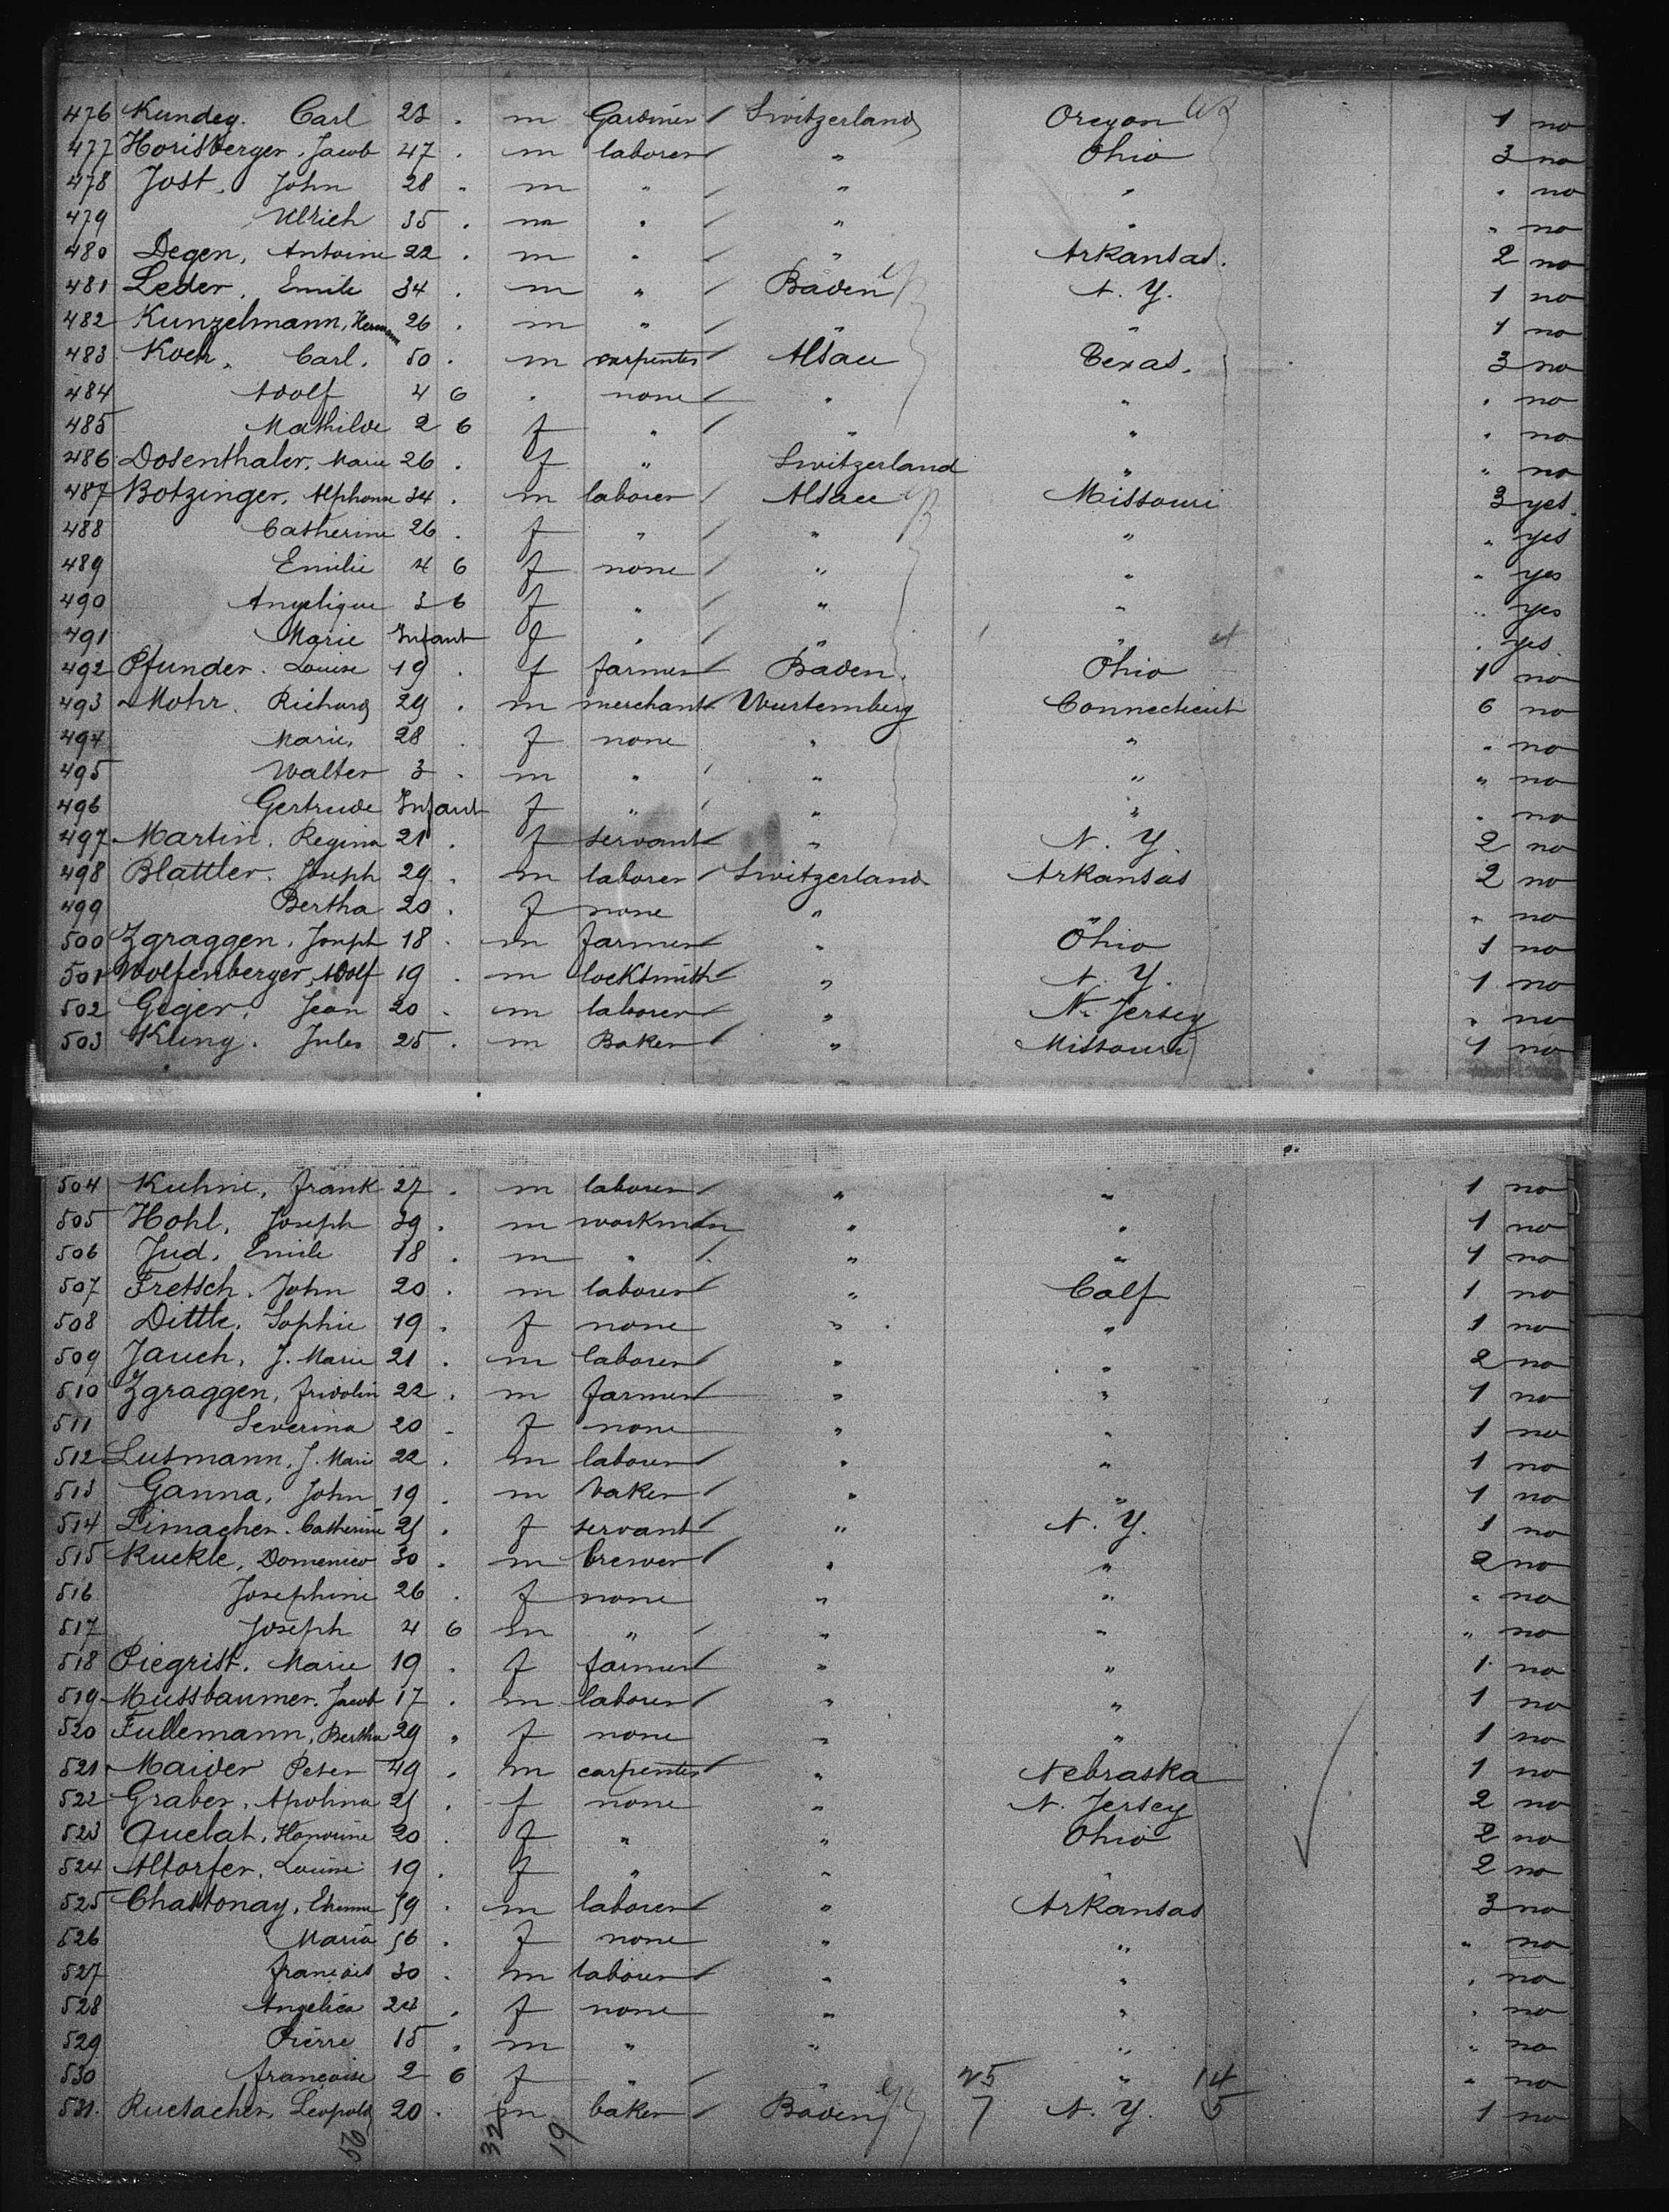 476 Kundeg. Carl 23 . m Gardiner / Switzerland Oregon 1 no
477 Horisberger, Jacob 47 . m laborer / " Ohio 3 no
478 Jost, John 28 . m " / " " " no
479 Ulrich 35 . m " / " " " no
480 Degen, Antoine 22 . m " / " Arkansas. 2 no
481 Leder, Emile 34 . m " / Baden N. Y. 1 no
482 Kunzelmann, Hermann 26 . m " / " " 1 no
483 Koch, Carl. 50 . m carpenter / Alsace Texas. 3 no
484 Adolf 4 6 . none / " " " no
485 Mathilde 2 6 f " / " " " no
486 Dosenthaler, Marie 26 . f " Switzerland " " no
487 Botzinger, Alphonse 34 . m laborer / Alsace Missouri 3 yes.
488 Catherine 26 . f " / " " " yes
489 Emilie 4 6 f none / " " " yes
490 Angelique 3 6 f " / " " " yes
491 Marie Infant f " / " " " yes.
492 Pfunder. Louise 19 . f farmer / Baden. Ohio 1 no
493 Mohr. Richard 29 . m merchant Wurtemberg Connecticut 6 no
494 Marie, 28 . f none " " " no
495 Walter 3 . m " / " " " no
496 Gertrude Infant f " / " " " no
497 Martin, Regina 21 . f servant " N. Y. 2 no
498 Blattler. Joseph 29 . m laborer / Switzerland Arkansas 2 no
499 Bertha 20 . f none " " " no
500 Zgraggen, Joseph 18 . m farmer / " Ohio 1 no
501 Wolfenberger, Adolf 19 . m locksmith / " N. Y. 1 no
502 Geger, Jean 20 . m laborer / " N. Jersey " no
503 Kung. Jules 25 . m Baker / " Missouri 1 no
504 Kuhni, Frank 27 . m laborer / " " 1 no
505 Hohl, Joseph 39 . m workman " " 1 no
506 Jud, Emile 18 . m " / " " 1 no
507 Fretsch. John 20 . m laborer / " Calf 1 no
508 Dittli, Sophie 19 . f none " " 1 no
509 Jauch, J. Marie 21 . m laborer / " " 2 no
510 Zgraggen, Fridolin 22 . m farmer / " " 1 no
511 Severina 20 . f none " " 1 no
512 Lusmann, J. Marie 22 . m laborer / " " 1 no
513 Ganna, John 19 . m baker / " " 1 no
514 Limacher. Catherine 21 . f servant / " N. Y. 1 no
515 Ruckle, Domenico 30 . m brewer / " " 2 no
516 Josephine 26 . f none " " " no
517 Joseph 4 6 m " / " " " no
518 Piegrist. Marie 19 . f farmer / " " 1 no
519 Mussbaumer. Jacob 17 . m laborer / " " 1 no
520 Fullemann, Bertha 29 . f none " " 1 no
521 Maider Peter 49 . m carpenter / " Nebraska 1 no
522 Graber, Apolina 21 . f none " N. Jersey 2 no
523 Quelat, Honorine 20 f " " Ohio 2 no
524 Altorfer, Louise 19 . f " " " 2 no
525 Chattonay, Etienne 59 . m laborer / " Arkansas 3 no
526 Maria 56 . f none " " " no
527 François 30 . m laborer / " " " no
528 Angelica 24 . f none " " " no
529 Pierre 15 . m " " " " no
530 Françoise 2 6 f " " 25 " 14 " no
531. Ruesacher, Leopold 20 . m baker / Baden 7 N. Y. 5 1 no
56 32 19